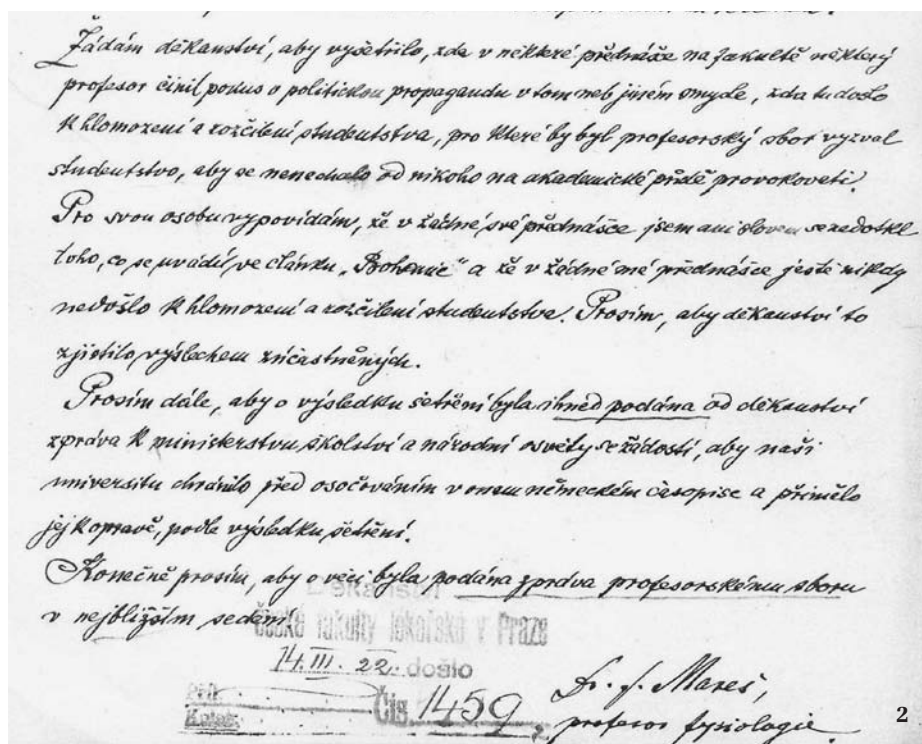 Žádám děkanství, aby vyšetřilo, zda v některé přednášce na fakultě některý
profesor činil pokus o politickou propagandu v tom neb jiném smyslu, zda tu došlo
k hlomození a rozčilení studentstva, pro které by byl profesorský sbor vyzval
studentstvo, aby se nenechalo od nikoho na akademické půdě provokovati.
Pro svou osobu vypovídám, že v žádné své přednášce jsem ani slovem se nedotkl
toho, co se uvádí ve článku „Bohemie" a že v žádné mé přednášce ještě nikdy
nedošlo k hlomození a rozčilení studentstva. Prosím, aby děkanství to
zjistilo, výslechem zúčastněných.
Prosím dále, aby o výsledku šetření byla ihned podána od děkanství
zpráva k ministerstvu školství a národní osvěty se žádostí, aby naši
universitu chránilo před osočováním v onom německém časopise a přimělo
jej k opravě, podle výsledku šetření.
Konečně prosím, aby o věci byla podána zpráva profesorskému sboru
v nejbližším sedění
Děkanství
české fakulty lékařské v Praze
14. III. 22. došlo
Příl.
Čís. 1459
Kolek
Dr. f. Mareš,
profesor fysiologie
2